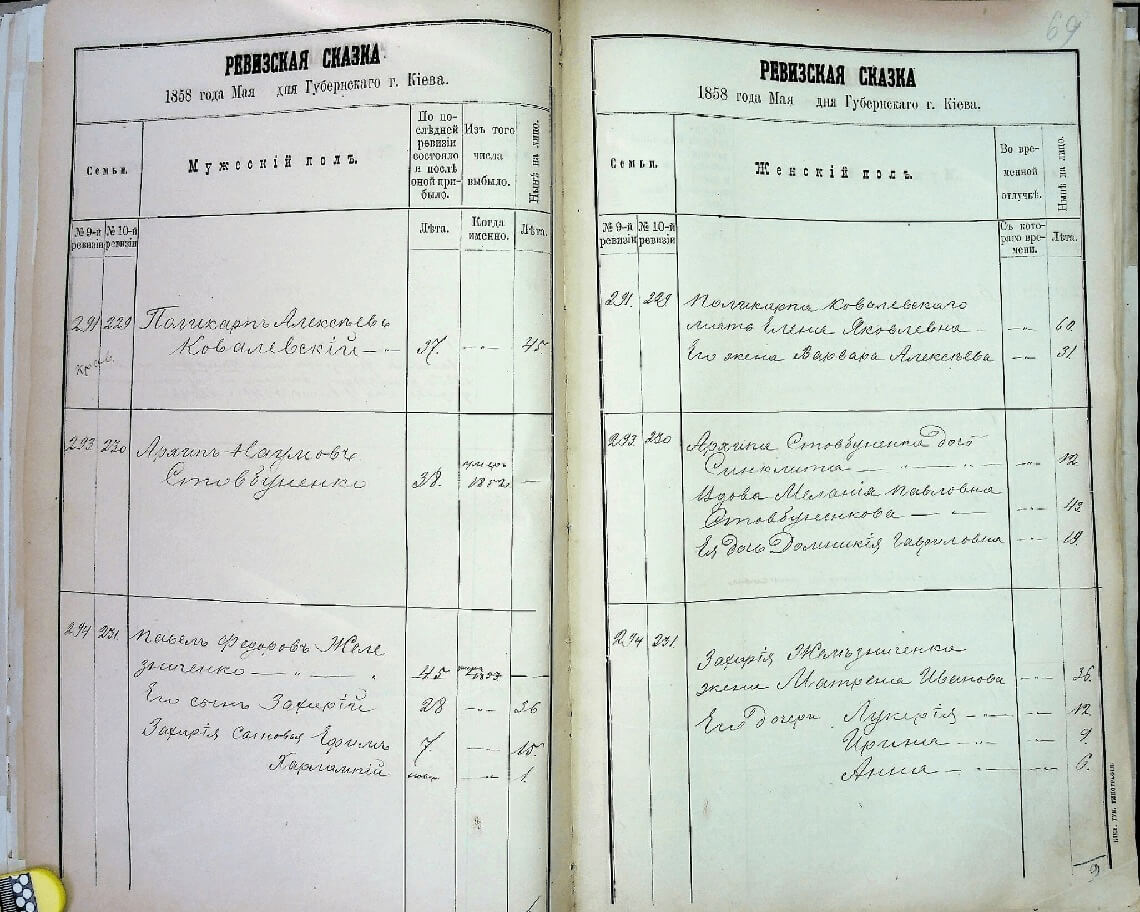 РЕВИЗСКАЯ СКАЗКА
1858 года Мая дня Губернскаго г. Кіева.
Семьи.
Мужескій полъ.
По по-
слѣдней
ревизіи
состояло
и послѣ
оной при-
было.
Изъ того
числа
выбыло.
Нынѣ на лицо.
№ 9-й
ревизіи
№ 10-й
ревизіи
Лѣта.
Когда
именно.
Лѣта.
291 229 Поликарпъ Алексѣевъ
Ковалевскій 37. 45
293 230 Архипъ Наумовъ
Стовбуненко 38.
294 231 Павелъ Федоровъ Желе
зниченко 45
Его сынъ Захарій 28 36
Захарія сыновья Ефимъ 7 15
Харлампій 1
69
РЕВИЗСКАЯ СКАЗКА
1858 года Мая дня Губернскаго г. Кіева.
Семьи.
Женскій полъ.
Во вре-
менной
отлучкѣ.
Нынѣ на лицо.
№ 9-й
ревизіи
№ 10-й
ревизіи
Съ кото-
раго вре-
мени.
Лѣта.
291. 229 Поликарпа Ковалевскаго
мать Елена Яковлевна 60.
Его жена Варвара Алексѣева 31.
293 230 Архипа Стовбуненка дочь
Синклита 12
Вдова Меланія Павловна
Стовбуненкова 42
Ея дочь Домникія Гавриловна 19.
294 231. Захарія Желѣзниченка
жена Матрена Иванова 36.
Его дочери Лукерія 12
Ирина 9.
Анна 6.
КІЕВ. ГУБ. ТИПОГРАФІЯ.
9